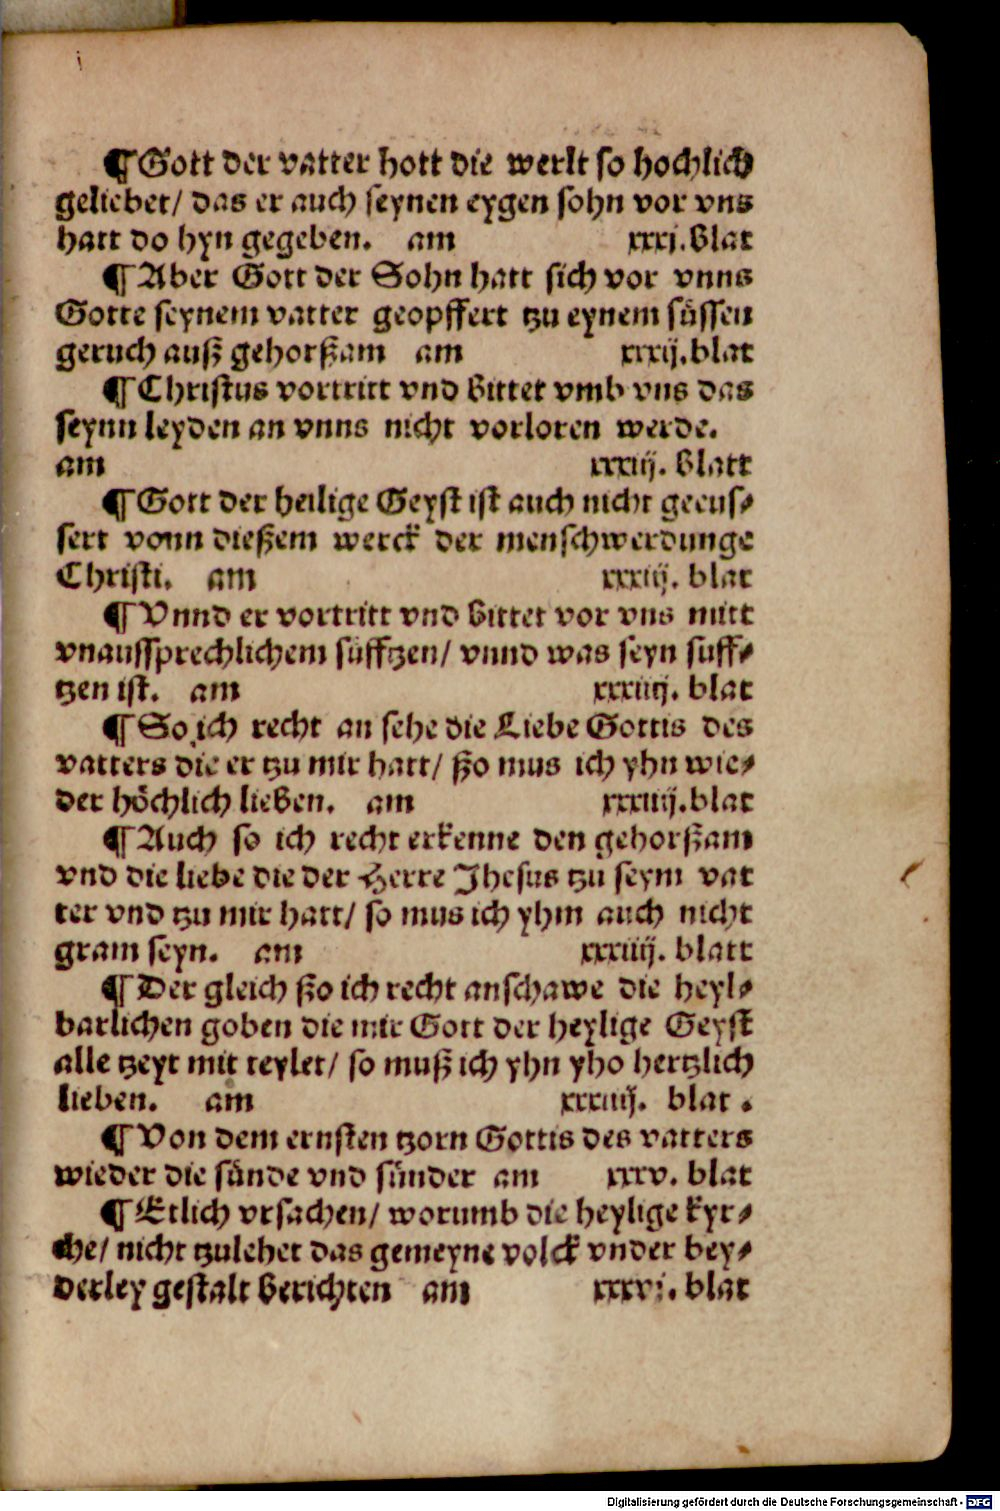 ¶ Gott der vatter hott die werlt so hochlich
geliebet/ das er auch seynen eygen sohn vor vns
hatt do hyn gegeben. am xxxj. blat
¶ Aber Gott der Sohn hatt sich vor vnns
Gotte seynem vatter geopffert tzu eynem süssen
geruch auß gehorßam am xxxij. blat
¶ Christus vortritt vnd bittet vmb vns das
seynn leyden an vnns nicht vorloren werde.
am xxxiij. blatt
¶ Gott der heilige Geyst ist auch nicht geeus⸗
sert vonn dießem werck der menschwerdunge
Christi. am xxxiij. blat
¶ Vnnd er vortritt vnd bittet vor vns mitt
vnaussprechlichem süfftzen/ vnnd was seyn suff⸗
tzen ist. am xxxiiij. blat
¶ So ich recht an sehe die Liebe Gottis des
vatters die er tzu mir hatt/ ßo mus ich yhn wie⸗
der höchlich lieben. am xxxiiij. blat
¶ Auch so ich recht erkenne den gehorßam
vnd die liebe die der Herre Jhesus tzu seym vat
ter vnd tzu mir hatt/ so mus ich yhm auch nicht
gram seyn. am xxxiiij. blatt
¶ Der gleich ßo ich recht anschawe die heyl⸗
barlichen goben die mir Gott der heylige Geyst
alle tzeyt mit teylet/ so muß ich yhn yho hertzlich
lieben. am xxxiiij. blat.
¶ Von dem ernsten tzorn Gottis des vatters
wieder die sünde vnd sünder am xxxv. blat
¶ Etlich vrsachen/ worumb die heylige kyr⸗
che/ nicht tzulehet das gemeyne volck vnder bey⸗
derley gestalt berichten am xxxvj. blat
Digitalisierung gefördert durch die Deutsche Forschungsgemeinschaft - DFG